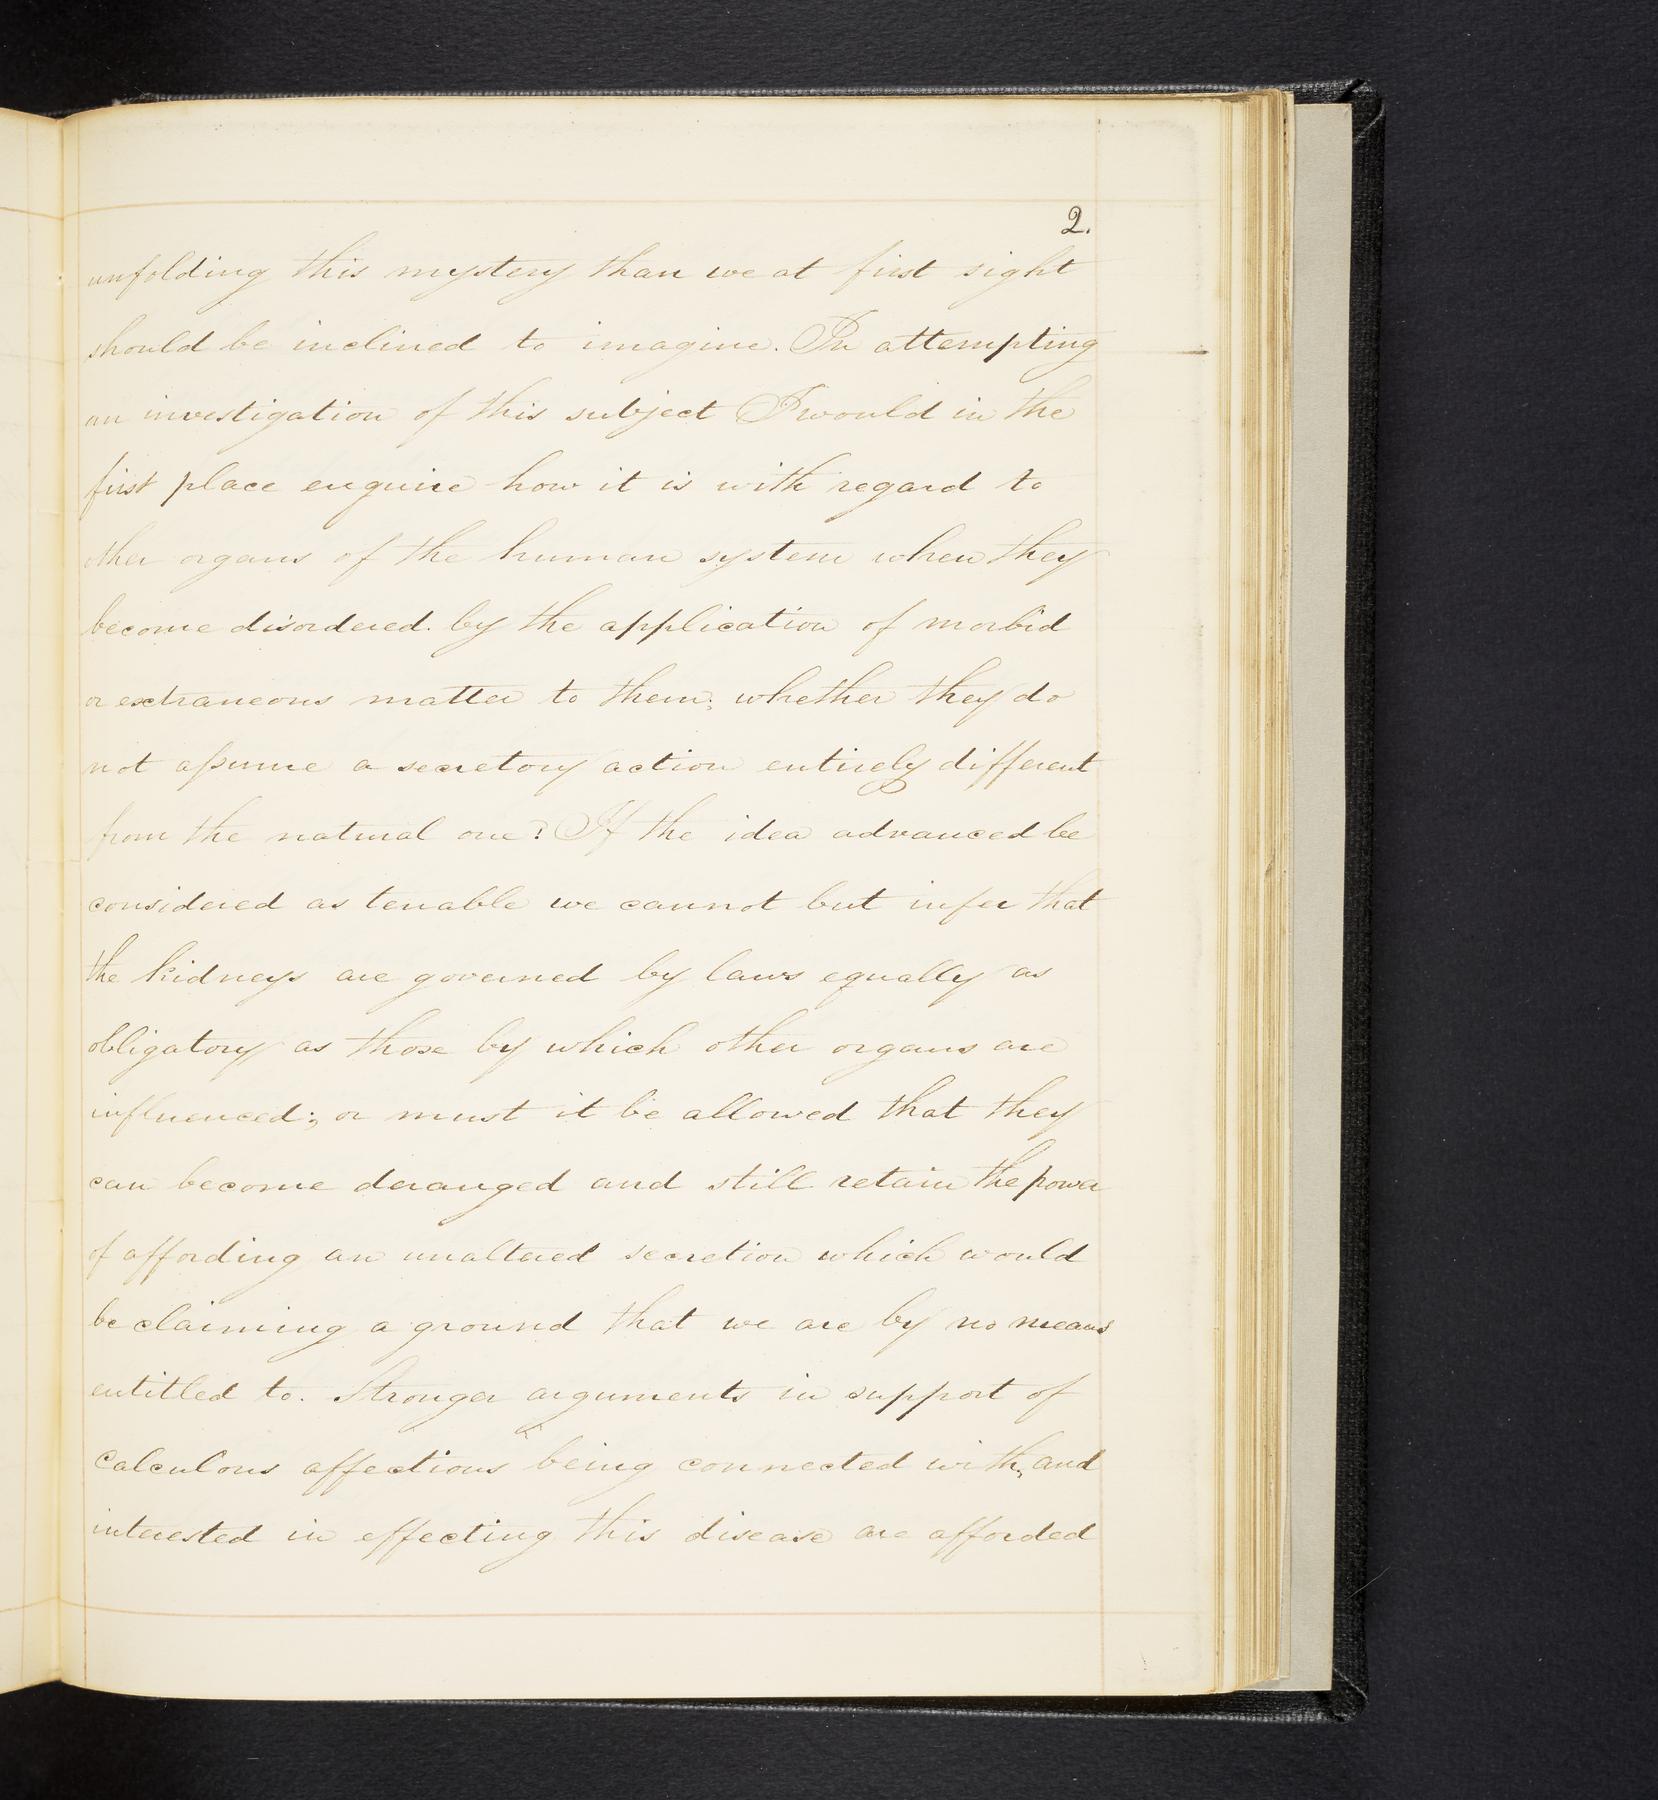 2.
unfolding this mystery than we at first sight
should be inclined to imagine. In attempting
an investigation of this subject I would in the
first place enquire how it is with regard to
other organs of the human system when they
become disordered. by the application of morbid
or extraneous matter to them; whether they do
not aſsume a secretory action entirely different
from the natural one? If the idea advanced be
considered as tenable we cannot but infer that
the kidneys are governed by laws equally as
obligatory as those by which other organs are
influenced; or must it be allowed that they
can become deranged and still retain the power
of affording an unaltered secretion which would
be claiming a ground that we are by no means
entitled to. Stronger arguments in support of
calculous affections being connected with, and
interested in effecting this disease are afforded